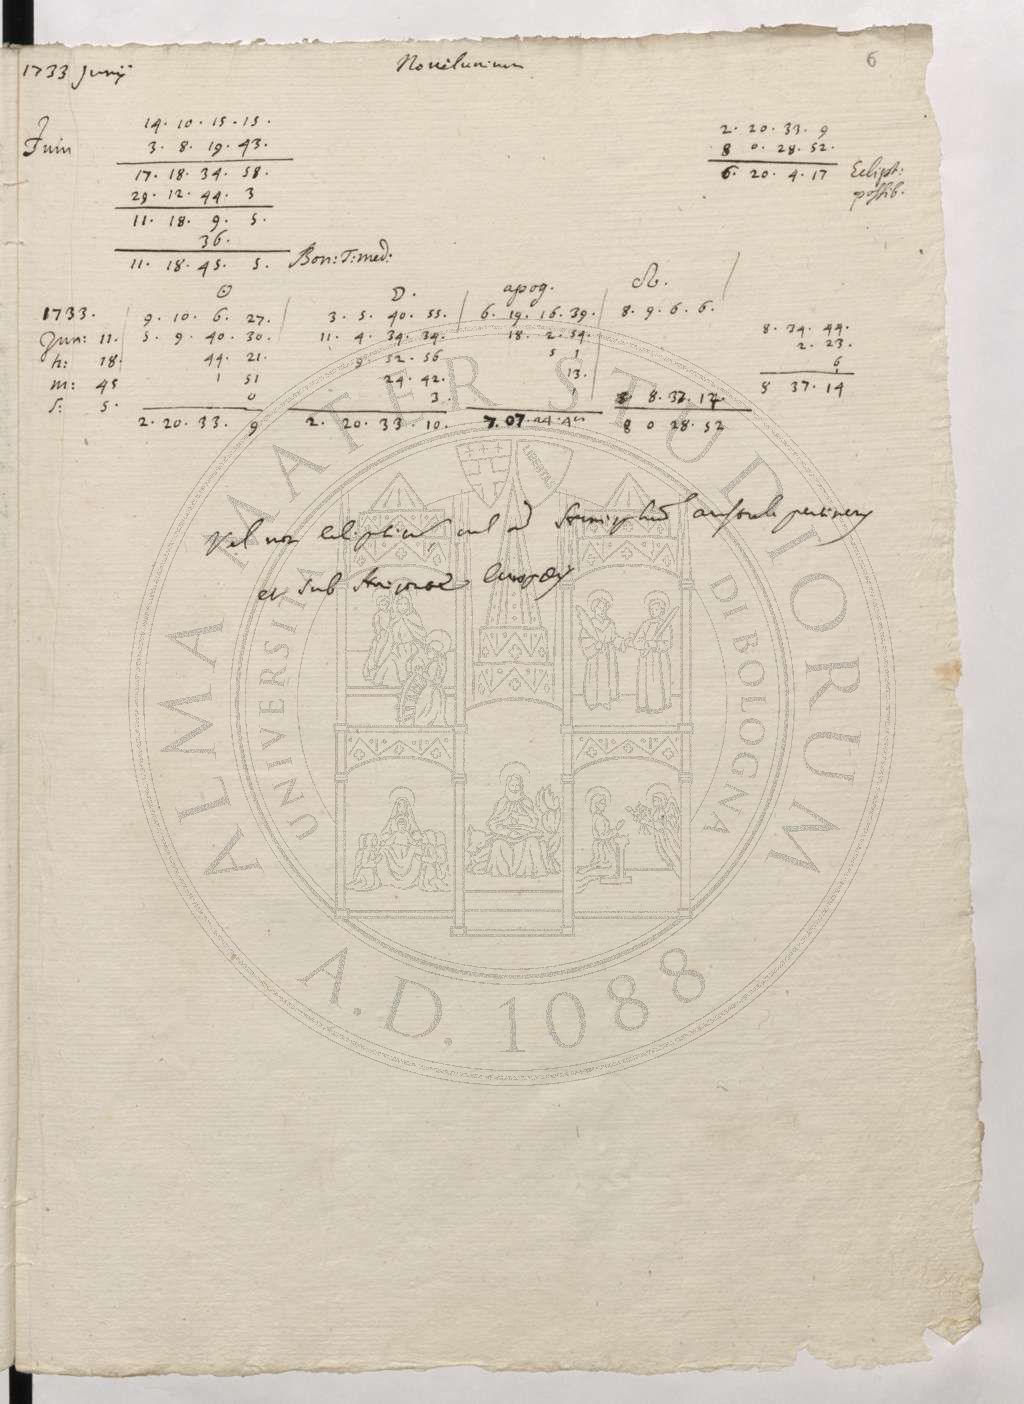 1733 Junij Novilunium 6
Juin
14. 10. 15. 15.
3. 8. 19. 43.
17. 18. 34. 58.
29. 12. 44. 3
11. 18. 9. 5.
36.
11. 18. 45. 5. Bon: T: med:
2. 20. 33. 9
8 0. 28. 52.
6. 20. 4. 17 Eclipt:
possib.
☉ ☽. apog. ☊.
1733. 9. 10. 6. 27. 3. 5. 40. 55. 6. 19. 16. 39. 8. 9. 6. 6.
Jun: 11. 5. 9. 40. 30. 11. 4. 34. 34. 18. 2. 54.
h: 18 44. 21. 9 52. 56 5 1
m: 45 1 51 24. 42. 13.
s: 5. 0 3. 1 8. 8. 37. 14.
2. 20. 33. 9 2. 20. 33. 10. 7. 07. 8 0 28. 52
8. 34. 44.
2. 23.
6
8 37. 14
vel non ecliptic vel ad australe
et sub
ALMA MATER STUDIORUM
UNIVERSITÀ DI BOLOGNA
LIBERTAS
A.D. 1088